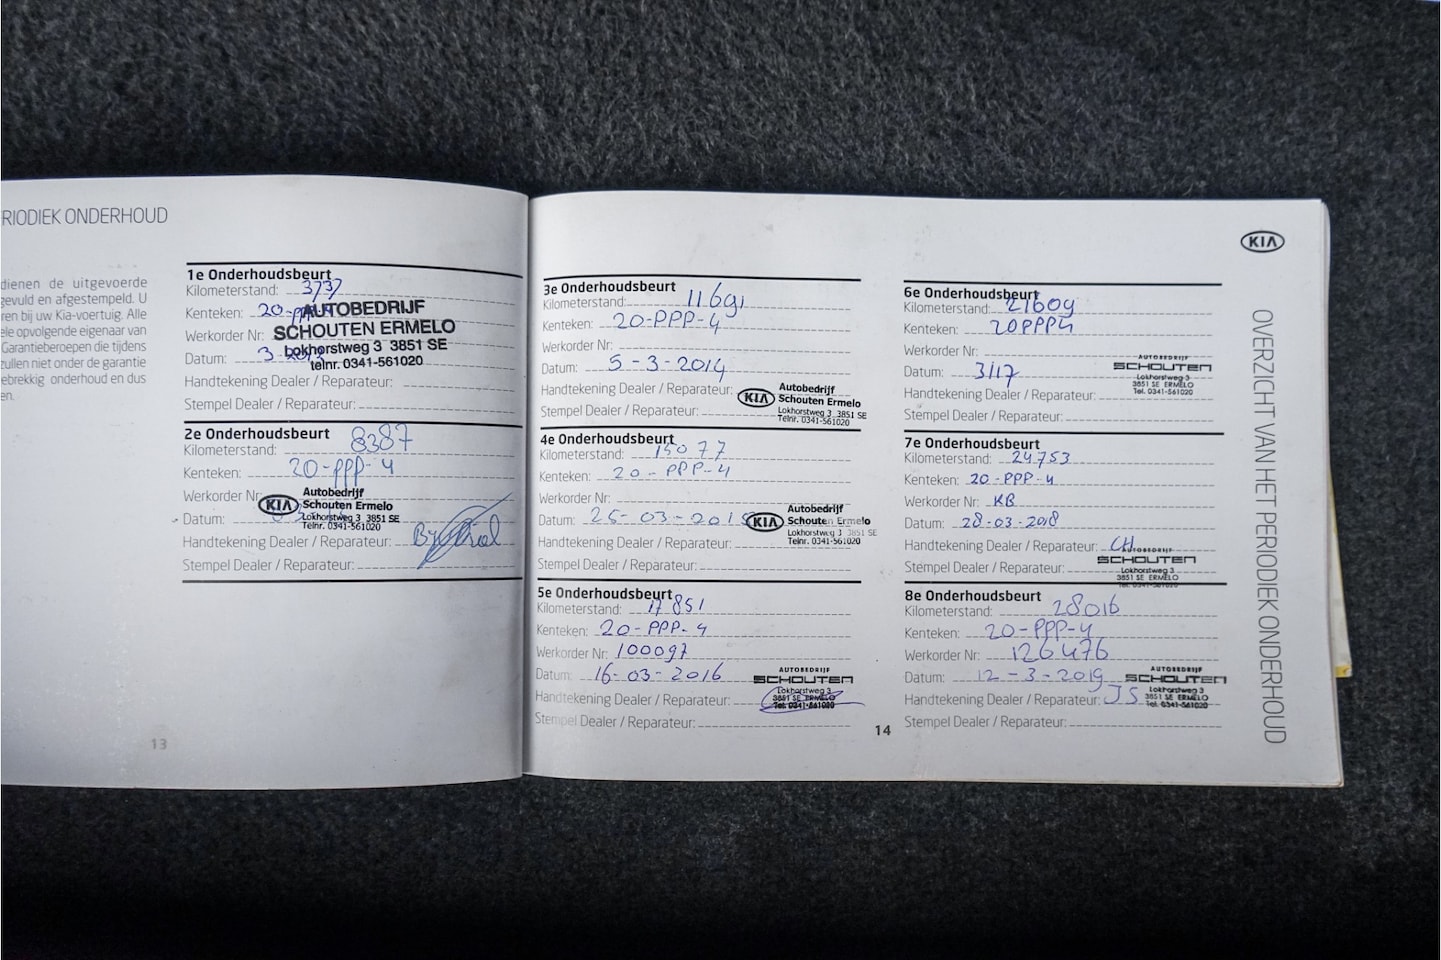 RIODIEK ONDERHOUD
dienen de uitgevoerde
gevuld en afgestempeld. U
ren bij uw Kia-voertuig. Alle
ele opvolgende eigenaar van
Garantieberoepen die tijdens
zullen niet onder de garantie
ebrekkig onderhoud en dus
en.
1e Onderhoudsbeurt
Kilometerstand: 3737
Kenteken: 20-PPP-4
Werkorder Nr:
Datum: 3
Handtekening Dealer / Reparateur:
Stempel Dealer / Reparateur:
AUTOBEDRIJF
SCHOUTEN ERMELO
Lokhorstweg 3 3851 SE
telnr. 0341-561020
2e Onderhoudsbeurt
Kilometerstand: 8387
Kenteken: 20-PPP-4
Werkorder Nr:
Datum:
Handtekening Dealer / Reparateur:
Stempel Dealer / Reparateur:
KIA
Autobedrijf
Schouten Ermelo
Lokhorstweg 3 3851 SE
Telnr. 0341-561020
13
3e Onderhoudsbeurt
Kilometerstand: 11691
Kenteken: 20-PPP-4
Werkorder Nr:
Datum: 5-3-2014
Handtekening Dealer / Reparateur:
Stempel Dealer / Reparateur:
KIA
Autobedrijf
Schouten Ermelo
Lokhorstweg 3 3851 SE
Telnr. 0341-561020
4e Onderhoudsbeurt
Kilometerstand: 15077
Kenteken: 20-PPP-4
Werkorder Nr:
Datum: 25-03-2015
Handtekening Dealer / Reparateur:
Stempel Dealer / Reparateur:
KIA
Autobedrijf
Schouten Ermelo
Lokhorstweg 3 3851 SE
Telnr. 0341-561020
5e Onderhoudsbeurt
Kilometerstand: 17851
Kenteken: 20-PPP-4
Werkorder Nr: 100097
Datum: 16-03-2016
Handtekening Dealer / Reparateur:
Stempel Dealer / Reparateur:
AUTOBEDRIJF
SCHOUTEN
Lokhorstweg 3
3851 SE ERMELO
Tel. 0341-561020
14
KIA
6e Onderhoudsbeurt
Kilometerstand: 21609
Kenteken: 20PPP4
Werkorder Nr:
Datum: 3/17
Handtekening Dealer / Reparateur:
Stempel Dealer / Reparateur:
AUTOBEDRIJF
SCHOUTEN
Lokhorstweg 3
3851 SE ERMELO
Tel. 0341-561020
7e Onderhoudsbeurt
Kilometerstand: 24753
Kenteken: 20-PPP-4
Werkorder Nr: KB
Datum: 28-03-2018
Handtekening Dealer / Reparateur: CH
Stempel Dealer / Reparateur:
AUTOBEDRIJF
SCHOUTEN
Lokhorstweg 3
3851 SE ERMELO
Tel. 0341-561020
8e Onderhoudsbeurt
Kilometerstand: 28016
Kenteken: 20-PPP-4
Werkorder Nr: 126476
Datum: 12-3-2019
Handtekening Dealer / Reparateur: JS
Stempel Dealer / Reparateur:
AUTOBEDRIJF
SCHOUTEN
Lokhorstweg 3
3851 SE ERMELO
Tel. 0341-561020
OVERZICHT VAN HET PERIODIEK ONDERHOUD